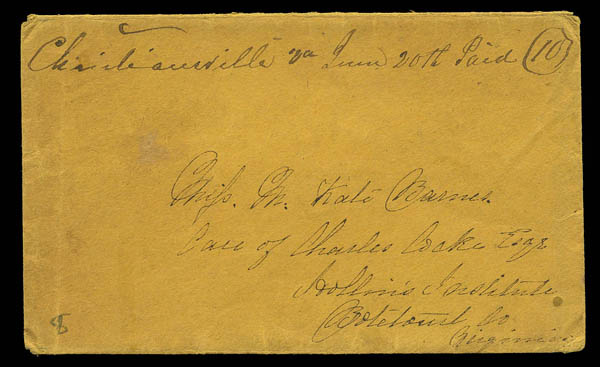 Christiansville Va June 20th Paid 10
Miss. M. Kate Barnes.
Care of Charles Cocke Esqr
Hollins Institute
Botetourt Co
Virginia
8